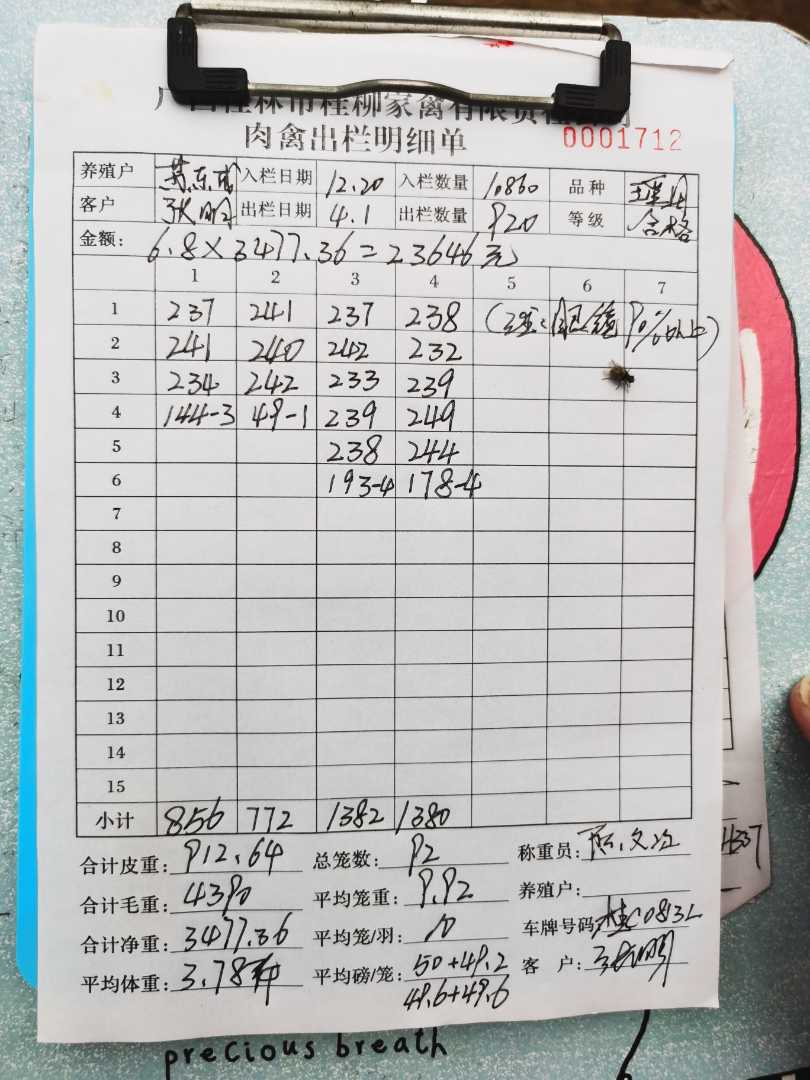 广西桂林市桂柳家禽有限责任公司
肉禽出栏明细单 0001712
养殖户 入栏日期 12.20 入栏数量 10860 品种
客户 张明 出栏日期 4.1 出栏数量 920 等级 合格
金额: 6.8×3477.36=23646元
1 2 3 4 5 6 7
1 237 241 237 238
2 241 240 242 232
3 234 242 233 239
4 144-3 49-1 239 249
5 238 244
6 193-4 178-4
7
8
9
10
11
12
13
14
15
小计 856 772 1382 1380
合计皮重: 912.64 总笼数: 92 称重员:
合计毛重: 4390 平均笼重: 9.92 养殖户:
合计净重: 3477.36 平均笼/羽: 10 车牌号码: 桂C0813L
平均体重: 3.78斤 平均磅/笼: 50+49.2 客 户: 张明
49.6+49.6
precious breath